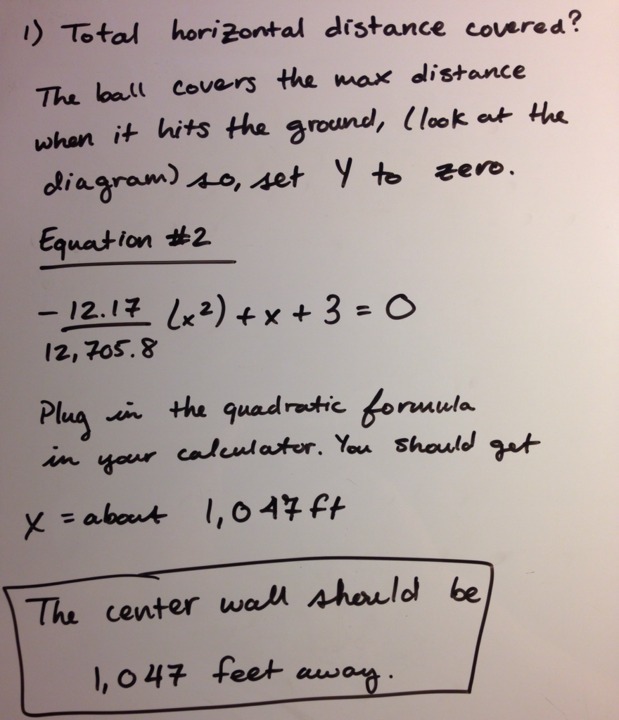 1) Total horizontal distance covered?
The ball covers the max distance
when it hits the ground, (look at the
diagram) so, set Y to zero.
Equation #2
- 12.17/12,705.8 (x²) + x + 3 = 0
Plug in the quadratic formula
in your calculator. You should get
X = about 1,047 ft
The center wall should be
1,047 feet away.